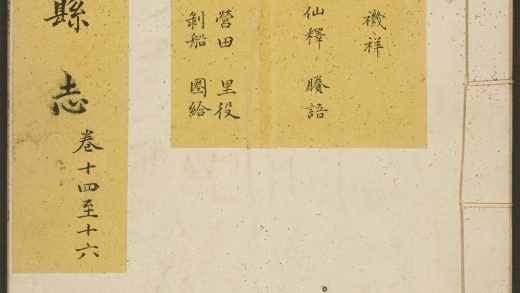 禨祥
仙釋 賸語
營田 里役
剝船 圈給
縣志
卷十四至十六